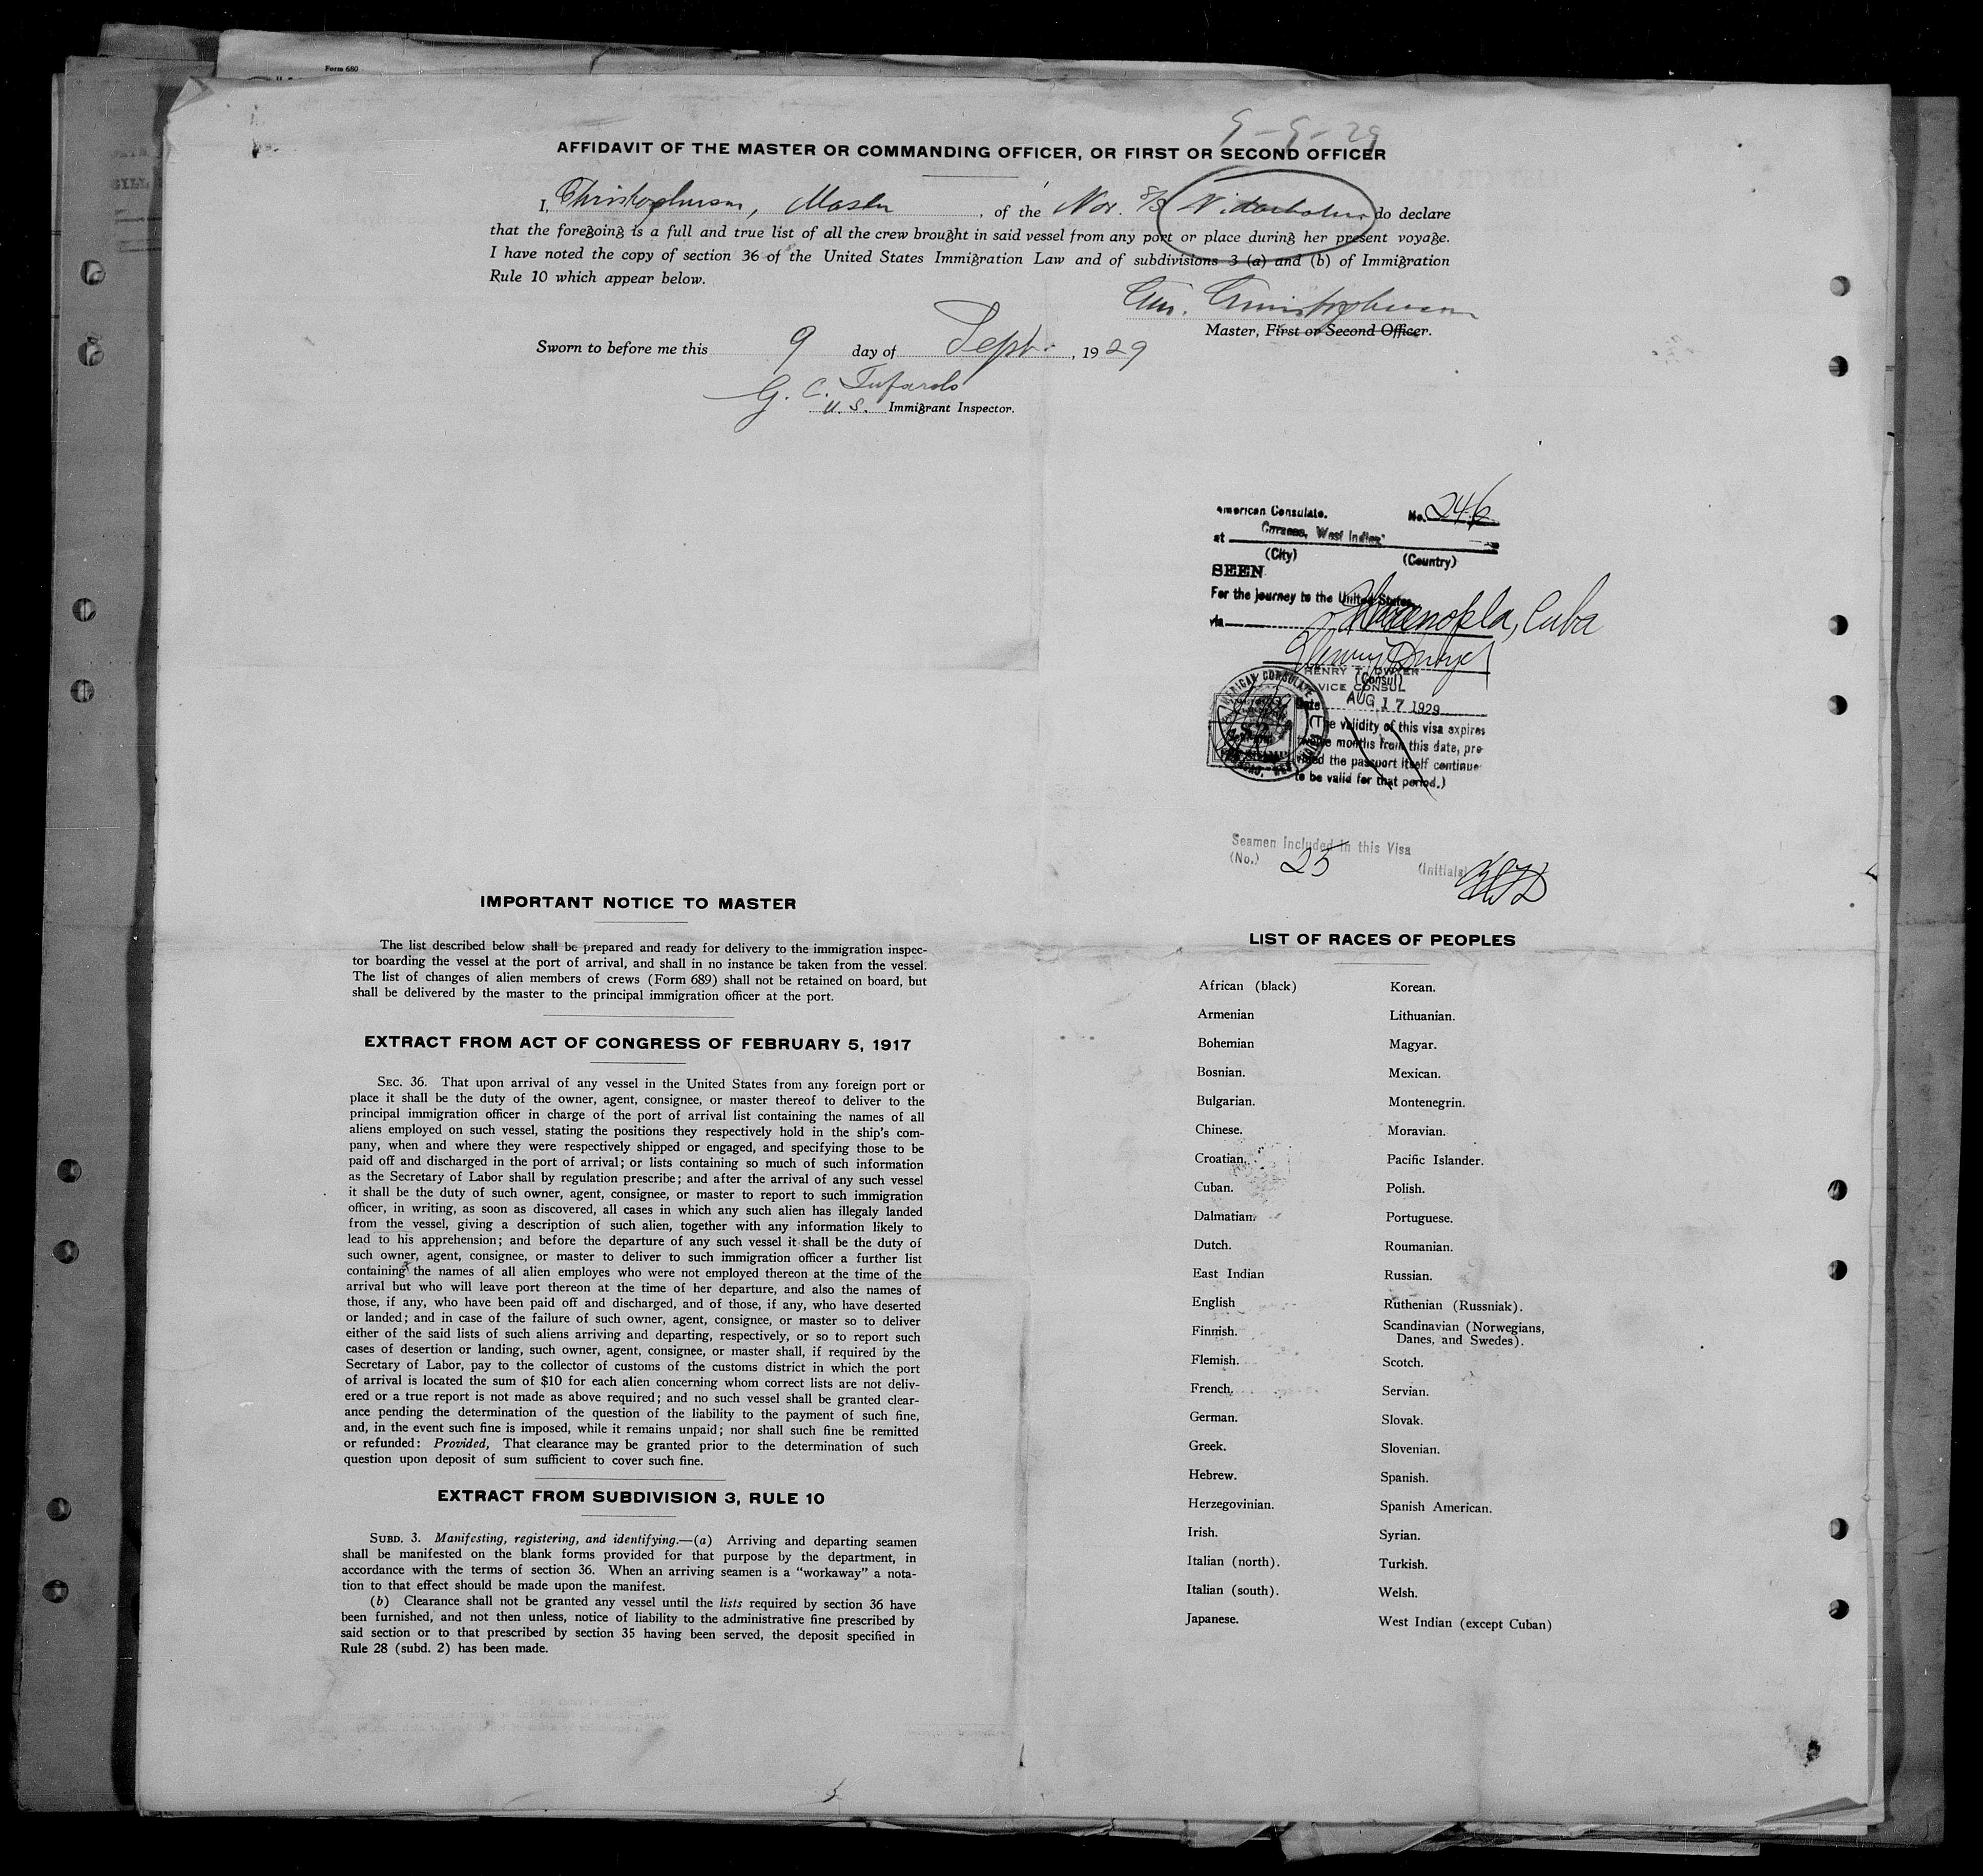 Form 680
9-9-29
AFFIDAVIT OF THE MASTER OR COMMANDING OFFICER, OR FIRST OR SECOND OFFICER
I, Christophersen, Master, of the Nor. S/S do declare
that the foregoing is a full and true list of all the crew brought in said vessel from any port or place during her present voyage.
I have noted the copy of section 36 of the United States Immigration Law and of subdivisions 3 (a) and (b) of Immigration
Rule 10 which appear below.
Christophersen
Master, First or Second Officer.
Sworn to before me this 9 day of Sept., 1929
G. C.
U. S. Immigrant Inspector.
American Consulate. No. 246
at Curacao, West Indies
(City) (Country)
SEEN
For the journey to the United States,
via Cuba
HENRY T. DWYER
(Consul)
VICE CONSUL
Date AUG 17 1929
(The validity of this visa expires
twelve months from this date, pro-
vided the passport itself continue
to be valid for that period.)
Seamen included in this Visa
(No.) 25 (initials) HTD
IMPORTANT NOTICE TO MASTER
The list described below shall be prepared and ready for delivery to the immigration inspec-
tor boarding the vessel at the port of arrival, and shall in no instance be taken from the vessel.
The list of changes of alien members of crews (Form 689) shall not be retained on board, but
shall be delivered by the master to the principal immigration officer at the port.
EXTRACT FROM ACT OF CONGRESS OF FEBRUARY 5, 1917
SEC. 36. That upon arrival of any vessel in the United States from any foreign port or
place it shall be the duty of the owner, agent, consignee, or master thereof to deliver to the
principal immigration officer in charge of the port of arrival list containing the names of all
aliens employed on such vessel, stating the positions they respectively hold in the ship's com-
pany, when and where they were respectively shipped or engaged, and specifying those to be
paid off and discharged in the port of arrival; or lists containing so much of such information
as the Secretary of Labor shall by regulation prescribe; and after the arrival of any such vessel
it shall be the duty of such owner, agent, consignee, or master to report to such immigration
officer, in writing, as soon as discovered, all cases in which any such alien has illegaly landed
from the vessel, giving a description of such alien, together with any information likely to
lead to his apprehension; and before the departure of any such vessel it shall be the duty of
such owner, agent, consignee, or master to deliver to such immigration officer a further list
containing the names of all alien employes who were not employed thereon at the time of the
arrival but who will leave port thereon at the time of her departure, and also the names of
those, if any, who have been paid off and discharged, and of those, if any, who have deserted
or landed; and in case of the failure of such owner, agent, consignee, or master so to deliver
either of the said lists of such aliens arriving and departing, respectively, or so to report such
cases of desertion or landing, such owner, agent, consignee, or master shall, if required by the
Secretary of Labor, pay to the collector of customs of the customs district in which the port
of arrival is located the sum of $10 for each alien concerning whom correct lists are not deliv-
ered or a true report is not made as above required; and no such vessel shall be granted clear-
ance pending the determination of the question of the liability to the payment of such fine,
and, in the event such fine is imposed, while it remains unpaid; nor shall such fine be remitted
or refunded: Provided, That clearance may be granted prior to the determination of such
question upon deposit of sum sufficient to cover such fine.
EXTRACT FROM SUBDIVISION 3, RULE 10
SUBD. 3. Manifesting, registering, and identifying.—(a) Arriving and departing seamen
shall be manifested on the blank forms provided for that purpose by the department, in
accordance with the terms of section 36. When an arriving seamen is a "workaway" a nota-
tion to that effect should be made upon the manifest.
(b) Clearance shall not be granted any vessel until the lists required by section 36 have
been furnished, and not then unless, notice of liability to the administrative fine prescribed by
said section or to that prescribed by section 35 having been served, the deposit specified in
Rule 28 (subd. 2) has been made.
LIST OF RACES OF PEOPLES
African (black) Korean.
Armenian Lithuanian.
Bohemian Magyar.
Bosnian. Mexican.
Bulgarian. Montenegrin.
Chinese. Moravian.
Croatian. Pacific Islander.
Cuban. Polish.
Dalmatian. Portuguese.
Dutch. Roumanian.
East Indian Russian.
English Ruthenian (Russniak).
Finnish. Scandinavian (Norwegians,
Danes, and Swedes).
Flemish. Scotch.
French. Servian.
German. Slovak.
Greek. Slovenian.
Hebrew. Spanish.
Herzegovinian. Spanish American.
Irish. Syrian.
Italian (north). Turkish.
Italian (south). Welsh.
Japanese. West Indian (except Cuban)